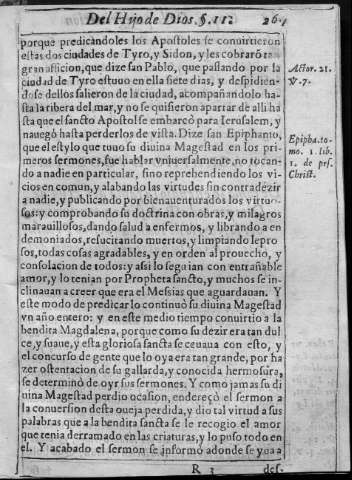 Del Hijo de Dios. §. II.
porque predicandoles los Apostoles se conuirtieron
estas dos ciudades de Tyro, y Sidon, y les cobraron
gran aflicion, que dize san Pablo, que passando por la
ciudad de Tyro estuuo en ella siete dias, y despidien-
dose dellos salieron de la ciudad, acompañandolo has-
ta la ribera del mar, y no se quisieron apartar de alli ha
sta que el sancto Apostol se embarcò para Ierusalem, y
nauegò hasta perderlos de vista. Dize san Epiphanio,
que el estylo que tuuo su diuina Magestad en los pri-
meros sermones, fue hablar vniuersalmente, no tocan-
do a nadie en particular, sino reprehendiendo los vi-
cios en comun, y alabando las virtudes sin contradezir
a nadie, y publicando por bienauenturados los virtuo-
sos: y comprobando su doctrina con obras, y milagros
marauillosos, dando salud a enfermos, y librando a en
demoniados, resucitando muertos, y limpiando lepro
sos, todas cosas agradables, y en orden al prouecho, y
consolacion de todos: y assi lo seguian con entrañable
amor, y lo tenian por Propheta sancto, y muchos se in-
clinauan a creer que era el Messias que aguardauan. Y
este modo de predicar lo continuò su diuina Magestad
vn año entero: y en este medio tiempo conuirtio a la
bendita Magdalena, porque como su dezir era tan dul
ce, y suaue, y esta gloriosa sancta se ceuaua con esto, y
el concurso de gente que lo oya era tan grande, por ha
zer ostentacion de su gallarda, y conocida hermosura,
se determinò de oyr sus sermones. Y como jamas su di
uina Magestad perdio ocasion, endereçò el sermon a
la conuersion desta oueja perdida, y dio tal virtud a sus
palabras que a la bendita sancta se le recogio el amor
que tenia derramado en las criaturas, y lo puso todo en
el. Y acabado el sermon se informò adonde se yua a
R 3 des-
Actor. 21.
v. 7.
Epipha. to-
mo. 1. lib.
1. de
Christ.